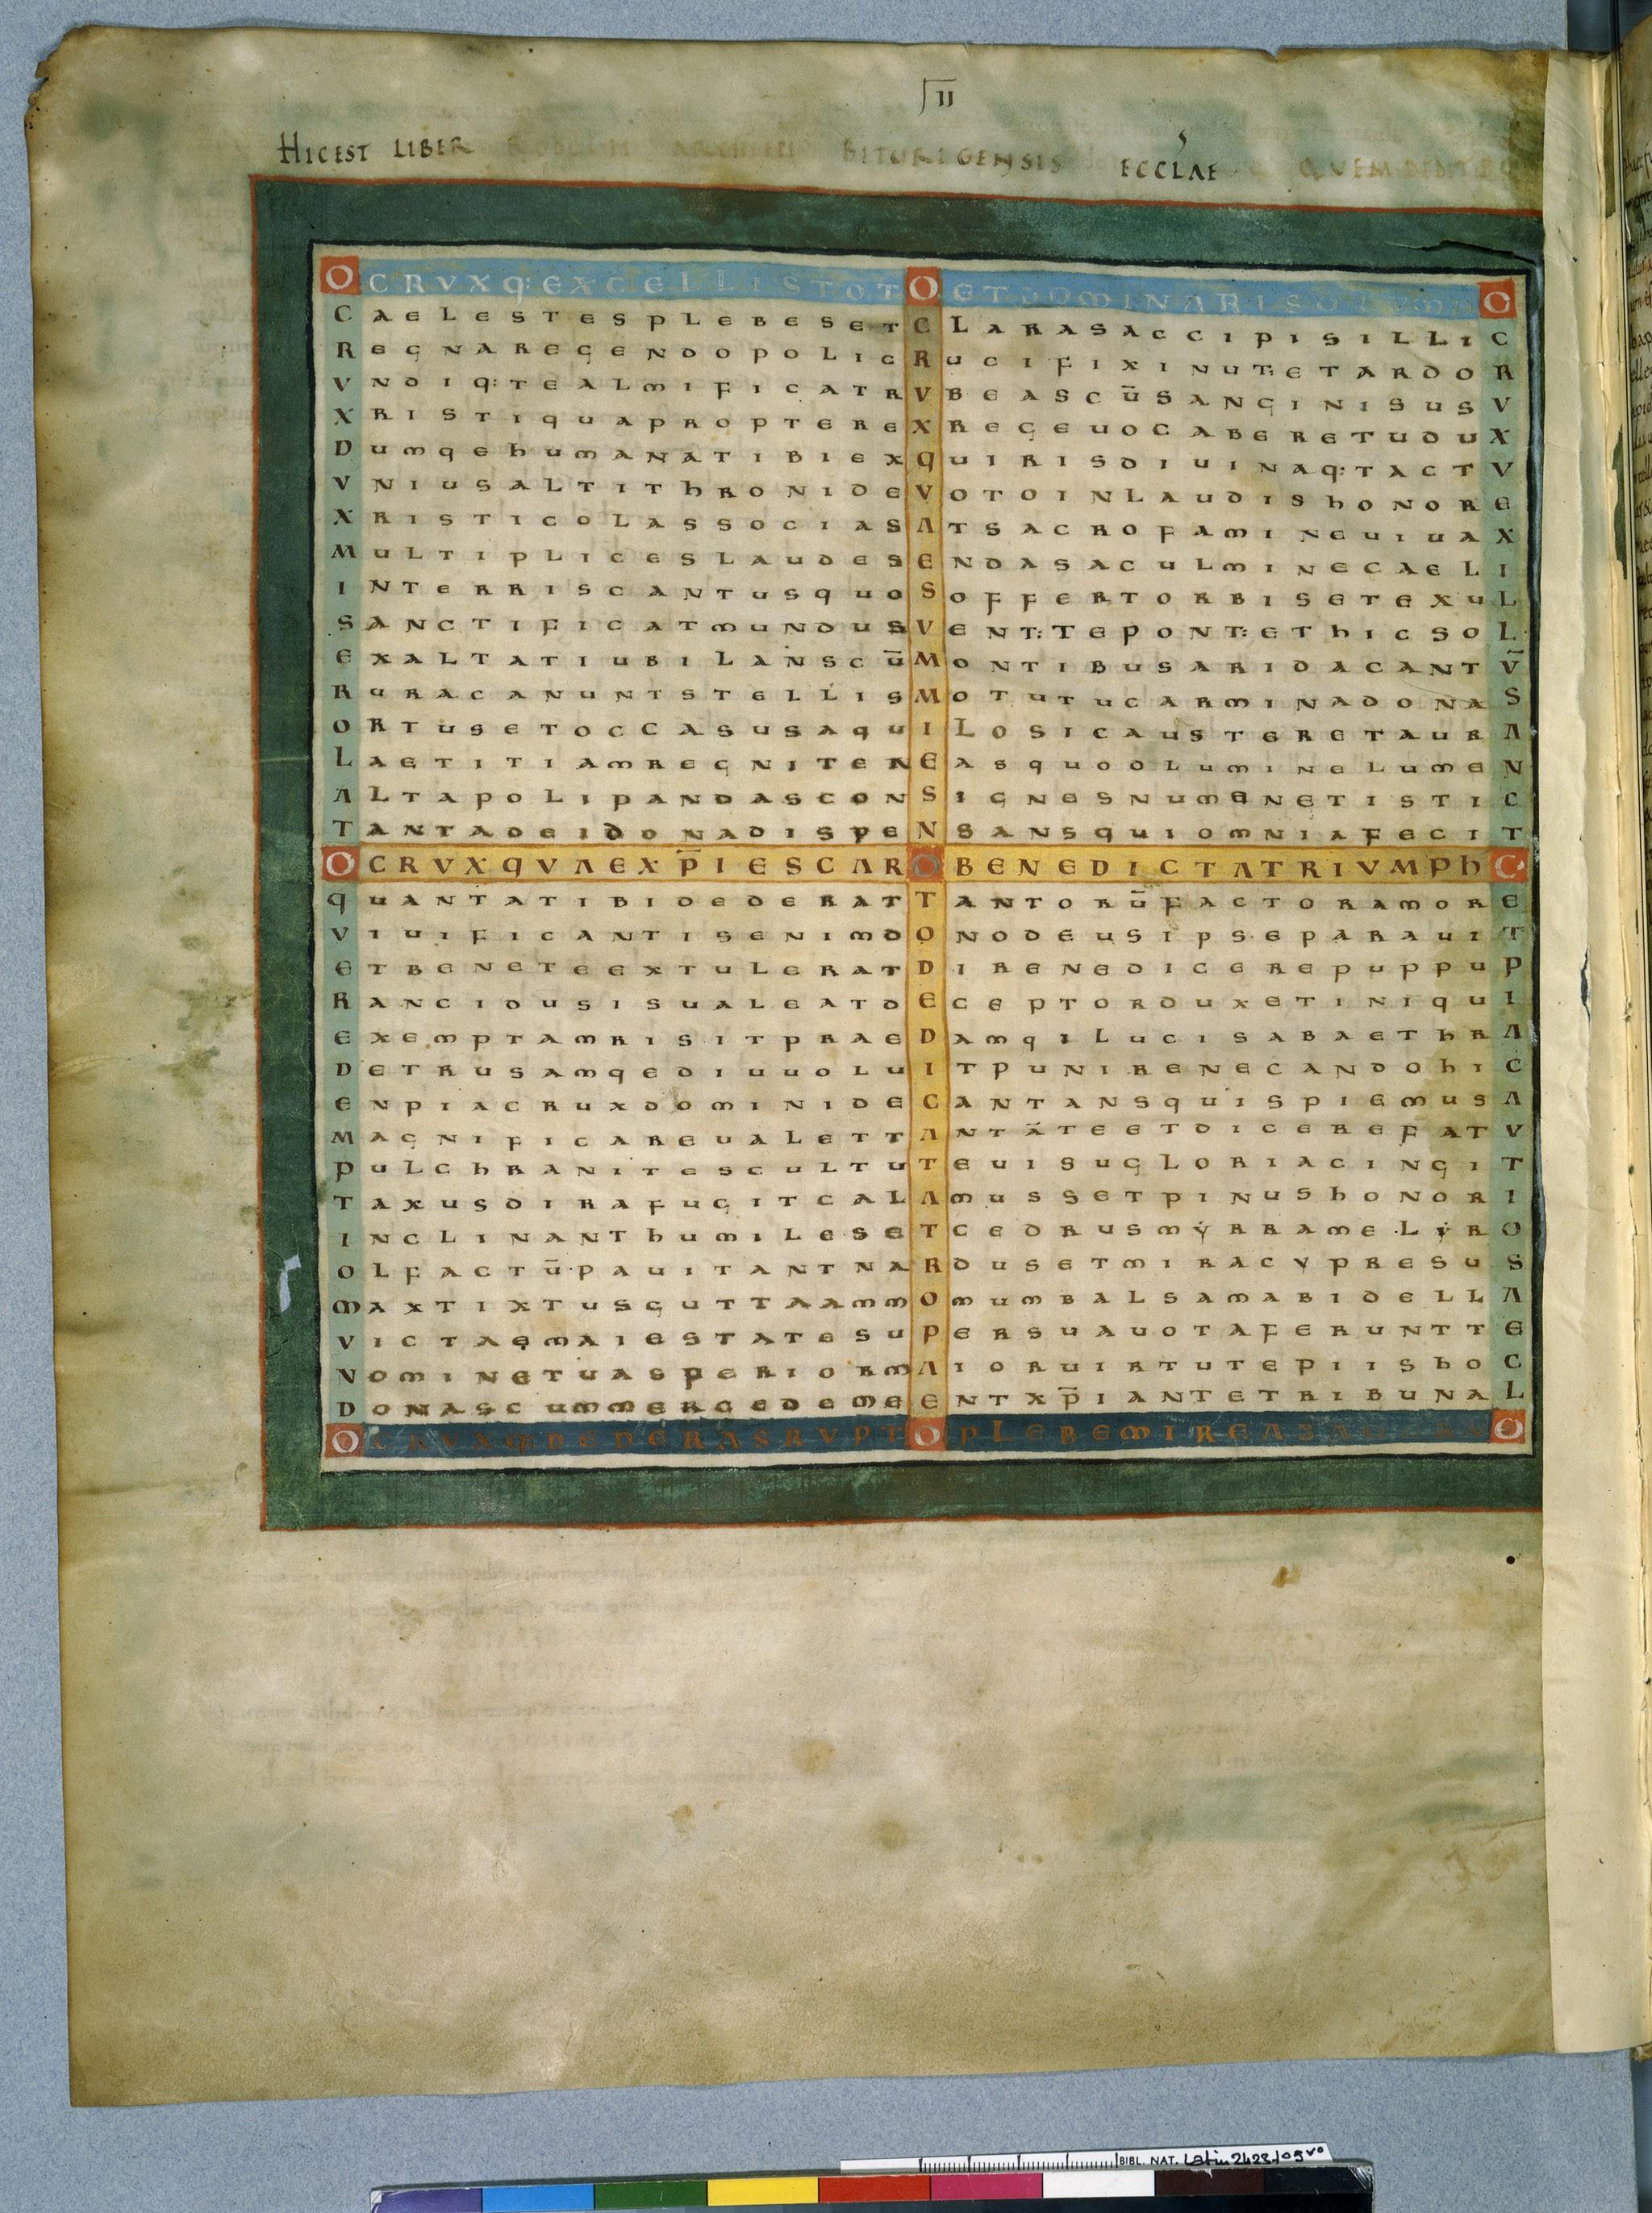 II
HIC EST LIBER BITURIGENSIS ECCLAE QUEM DEDIT
OCRVXQ:EXCELLISTOTOETDOMINARISOLYMPO
CAELESTESPLEBESETCLARASACCIPISILLIC
REGNAREGENDOPOLICRUCIFIXINUT:ETARDOR
VNDIQ:TEALMIFICATRVBEASCŪSANGINISUSV
XRISTIQUAPROPTEREXREGEUOCABERETUDUX
DUMQEHUMANATIBIEXQUIRISDIUINAQ:TACTV
VNIUSALTITHRONIDEVOTOINLAUDISHONORE
XRISTICOLASSOCIASATSACROFAMINEUIUAX
MULTIPLICESLAUDESENDASACULMINECAELI
INTERRISCANTUSQUOSOFFERTORBISETEXUL
SANCTIFICATMUNDUSVENT:TEPONT:ETHICSOL
EXALTATIUBILANSCŪMONTIBUSARIDACANTV̄
RURACANUNTSTELLISMOTUTUCARMINADONAS
ORTUSETOCCASUSAQUILOSICAUSTERETAURA
LAETITIAMREGNITENEASQUODLUMINELUMEN
ALTAPOLIPANDASCONSIGNESNUMENETISTIC
TANTADEIDONADISPENSANSQUIOMNIAFECIT
OCRVXQVAEXP̄IESCAROBENEDICTATRIVMPHO
QUANTATIBIDEDERATTANTORŪFACTORAMORE
VIUIFICANTISENIMDONODEUSIPSEPARAUIT
ETBENETEEXTULERATDIBENEDICEREPUPPUP
RANCIDUSISUALEATDECEPTORDUXETINIQUI
EXEMPTAMRISITPRAEDAMQILUCISABAETHRA
DETRUSAMQEDIUUOLUITPUNIRENECANDOHIC
ENPIACRUXDOMINIDECANTANSQUISPIEMUSA
MAGNIFICAREUALETTANTĀTEETDICEREFATV
PULCHRANITESCULTUTEUISUGLORIACINGIT
TAXUSDIRAFUGITCALAMUSSETPINUSHONORI
INCLINANTHUMILESETCEDRUSMYRRAMELYRO
OLFACTŪPAUITANTNARDUSETMIRACYPRESUS
MAXTIXTUSGUTTAAMMOMUMBALSAMABIDELLA
VICTAEMAIESTATESUPERSUAUOTAFERUNTTE
NOMINETUASPERIORMAIORUIRTUTEPIISHOC
DONASCUMMERGEDEMEENTXP̄IANTETRIBUNAL
OCRVXQ:DEDERASRVPTOPLEBEMIREAB
BIBL. NAT. Latin 2423, f 05 vo